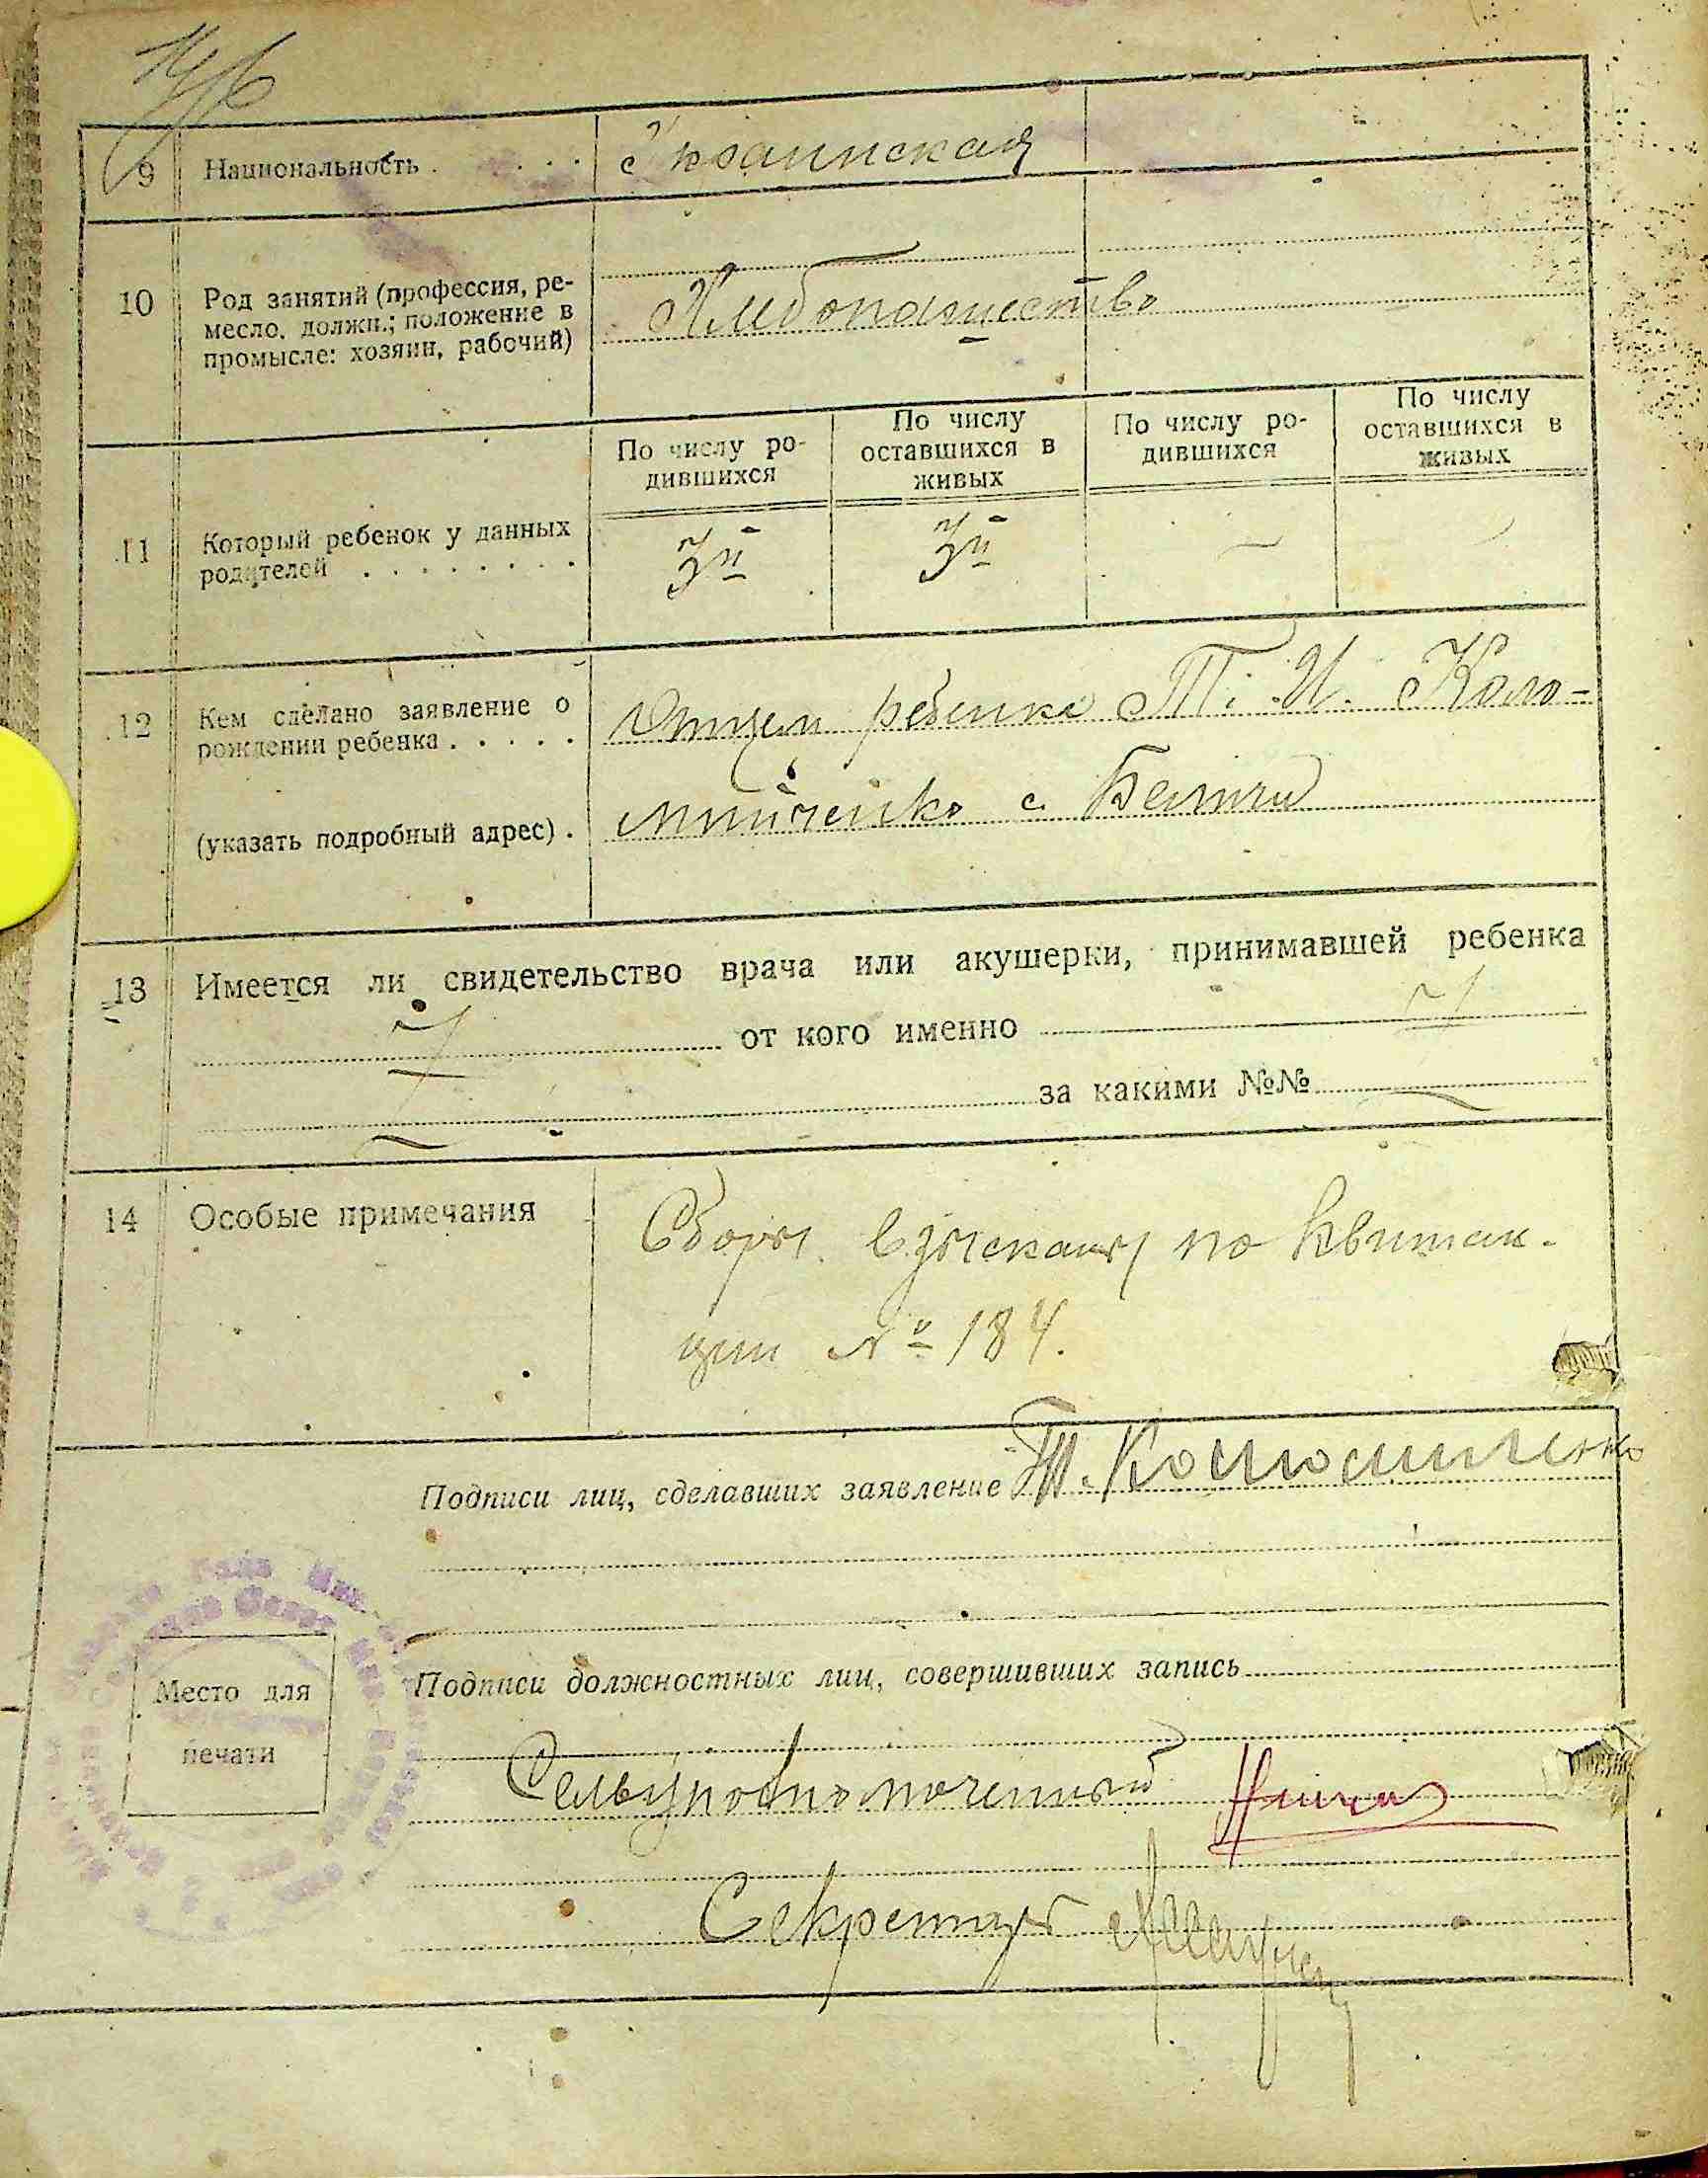 9 Национальность . . . . Украинская
10 Род занятий (профессия, ре-
месло, должн.; положение в
промысле: хозяин, рабочий)
Хлебопашество
По числу ро-
дившихся
По числу
оставшихся в
живых
По числу ро-
дившихся
По числу
оставшихся в
живых
11 Который ребенок у данных
родителей . . . . . . . .
3й
3й
12 Кем сделано заявление о
рождении ребенка . . . . .
(указать подробный адрес) .
Отцем ребенка Т. И. Коло-
мийченко с.
13 Имеется ли свидетельство врача или акушерки, принимавшей ребенка
от кого именно
за какими №№
14 Особые примечания
Сборы взысканы по квитан-
ции № 184.
Подписи лиц, сделавших заявление Т.
Подписи должностных лиц, совершивших запись
Место для
печати
Сельуповномоченный
Секретарь